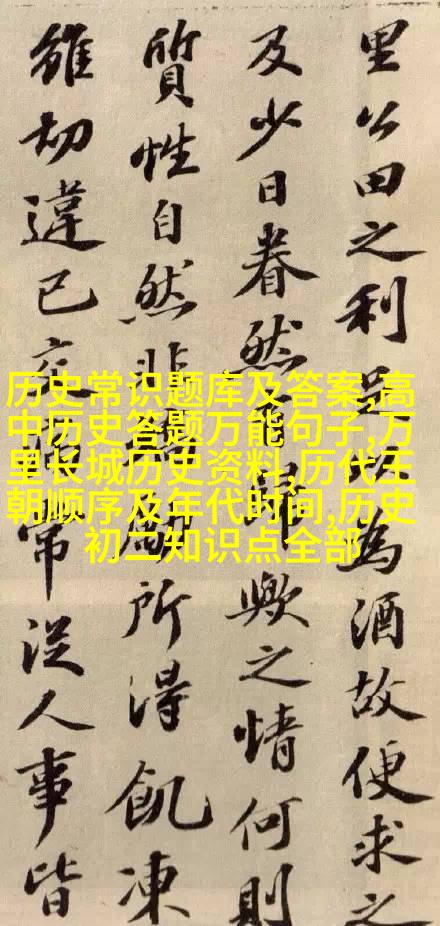 里公田之利為酒故便求之
及少日眷然歟之情何則
質性自然非所得飢凍
雖切違己交常從人事皆
历史常识题库及答案,高
中历史答题万能句子,万
里长城历史资料,历代王
朝顺序及年代时间,历史
初二知识点全部